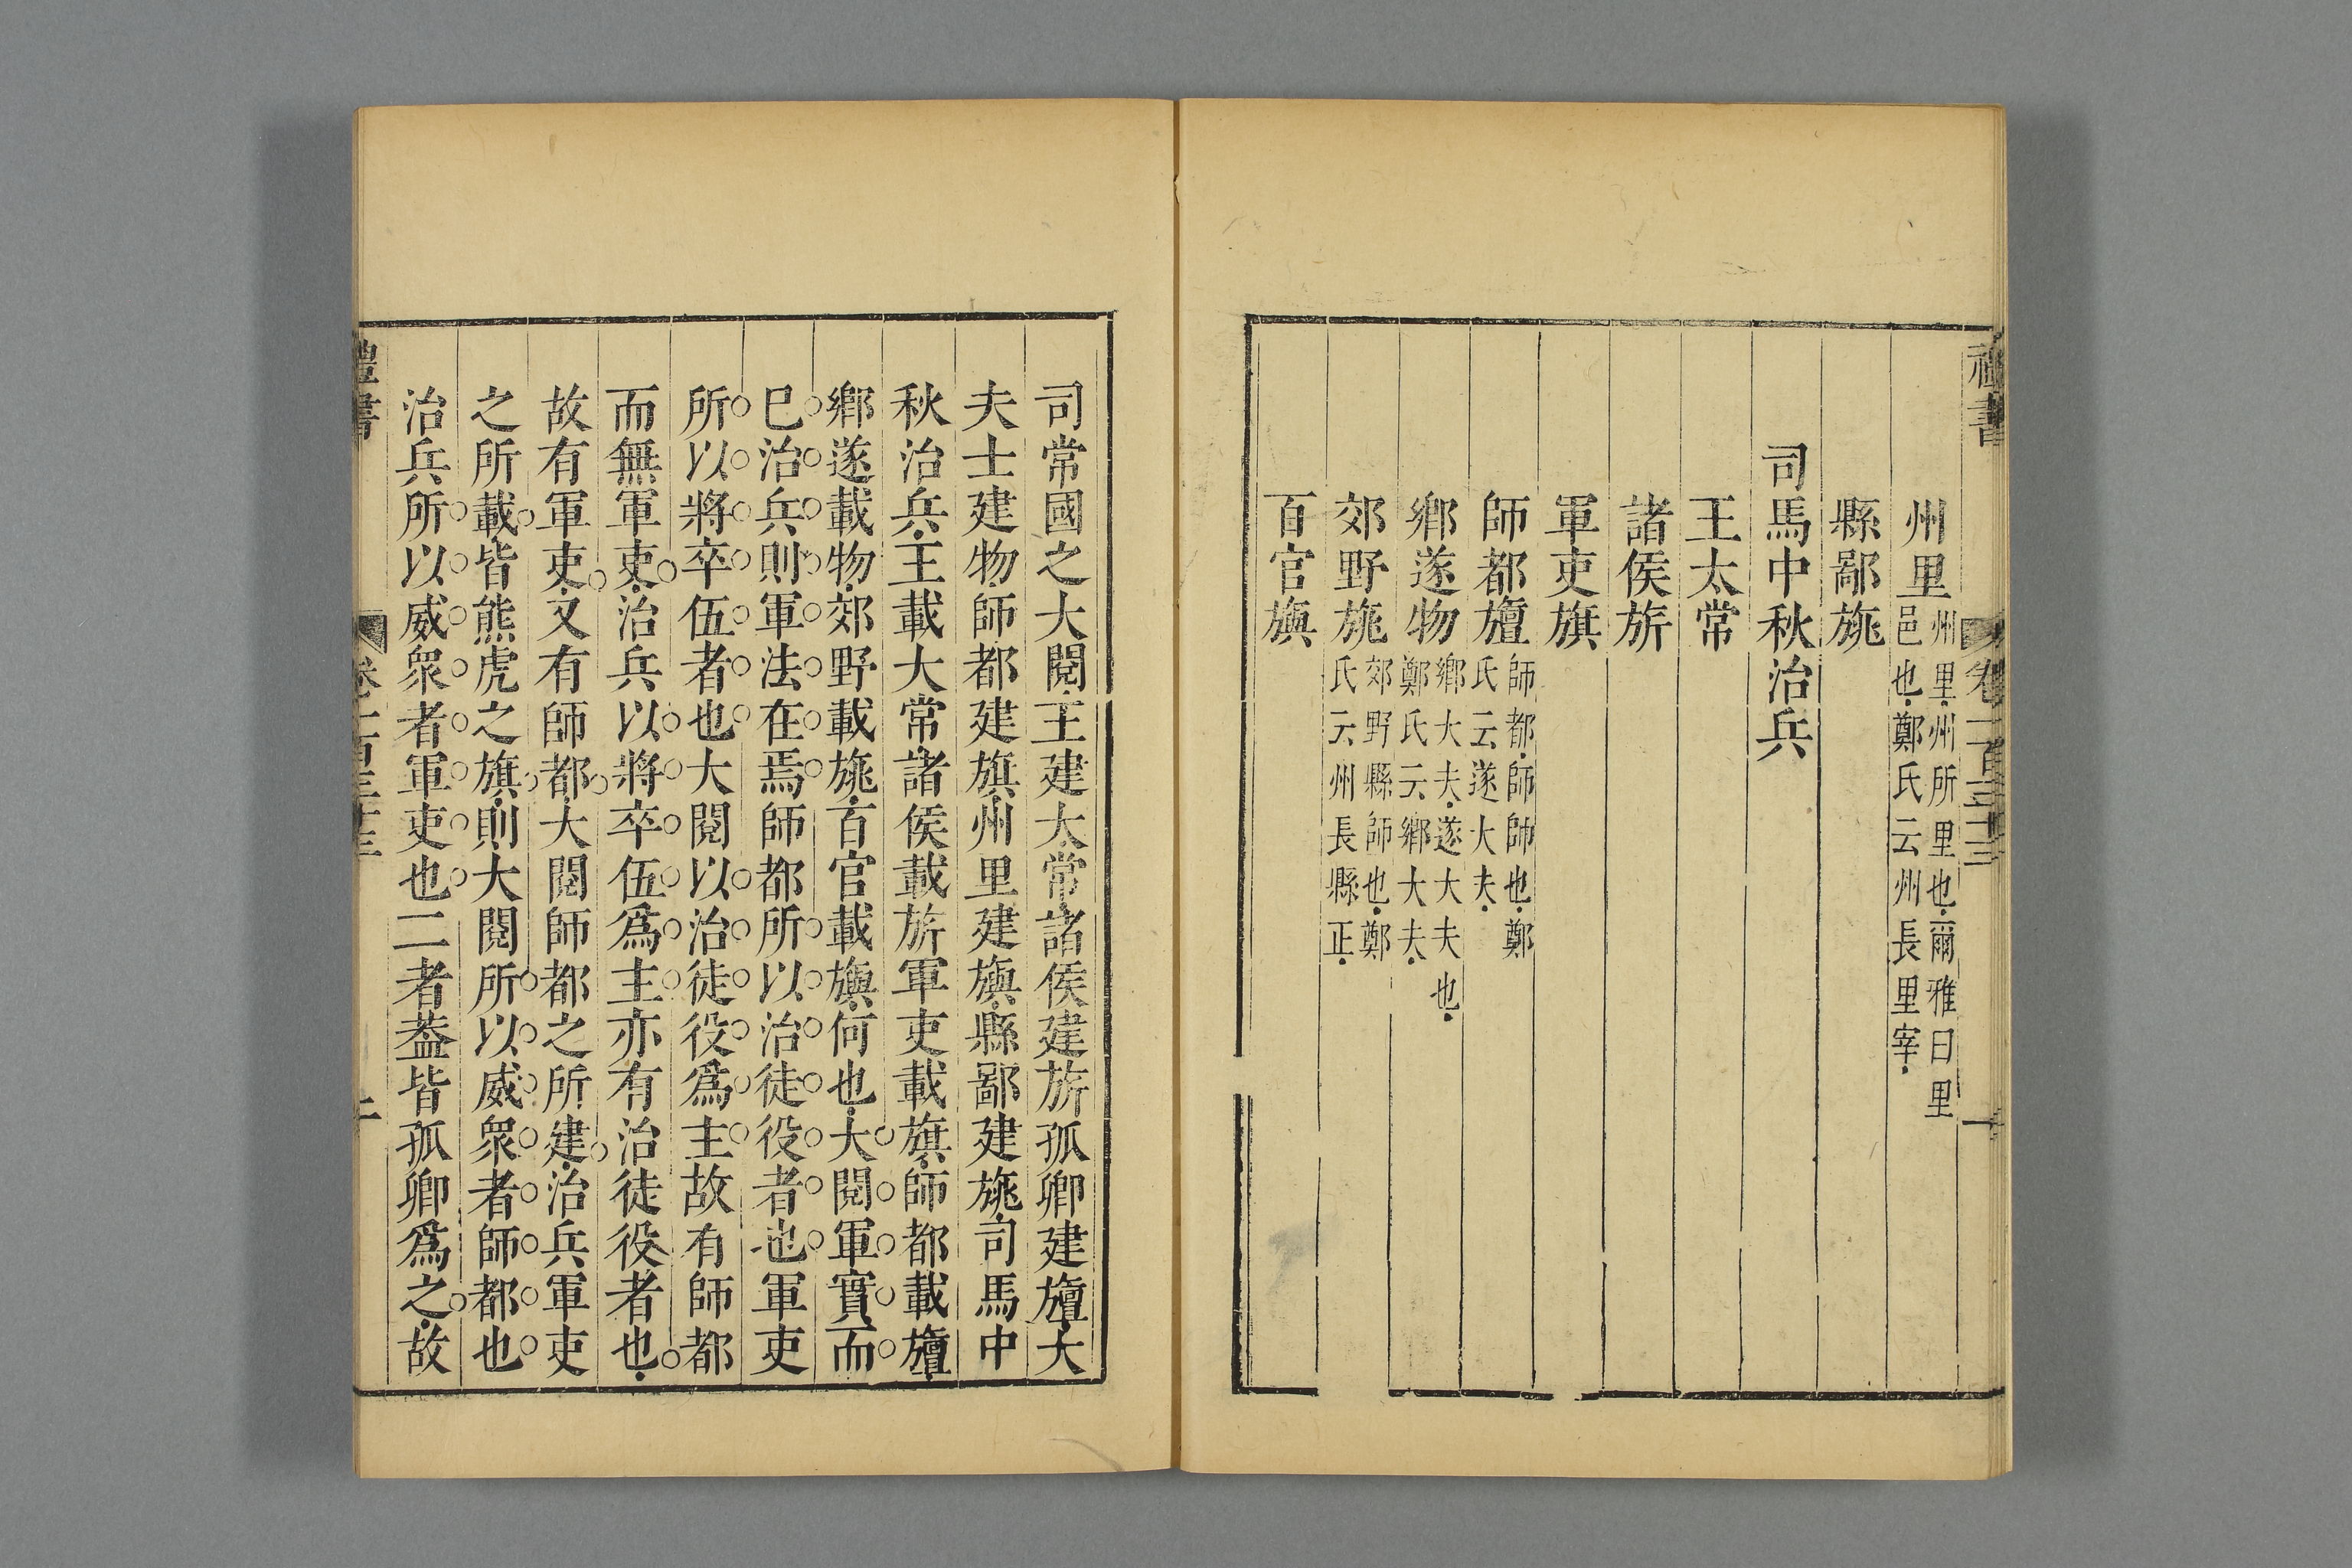 州里州里州所里也爾雅曰里邑也鄭氏云州長里宰
縣鄙旐
司馬中秋治兵
王太常
諸侯旂
軍吏旗
師都旜師都師師也鄭氏云遂大夫
鄉遂物鄉大夫遂大夫也鄭氏云鄉大夫
郊野旐郊野縣師也鄭氏云州長縣正
百官旟
司常國之大閱王建太常諸侯建旂孤卿建旜大
夫士建物師都建旗州里建旟縣鄙建旐司馬中
秋治兵王載大常諸侯載旂軍吏載旗師都載旜
鄉遂載物郊野載旐百官載旟何也大閱軍實而
巳治兵則軍法在焉師都所以治徒役者也軍吏
所以將卒伍者也大閱以治徒役爲主故有師都
而無軍吏治兵以將卒伍爲主亦有治徒役者也
故有軍吏又有師都大閱師都之所建治兵軍吏
之所載皆熊虎之旗則大閱所以威衆者師都也
治兵所以威衆者軍吏也二者葢皆孤卿爲之故